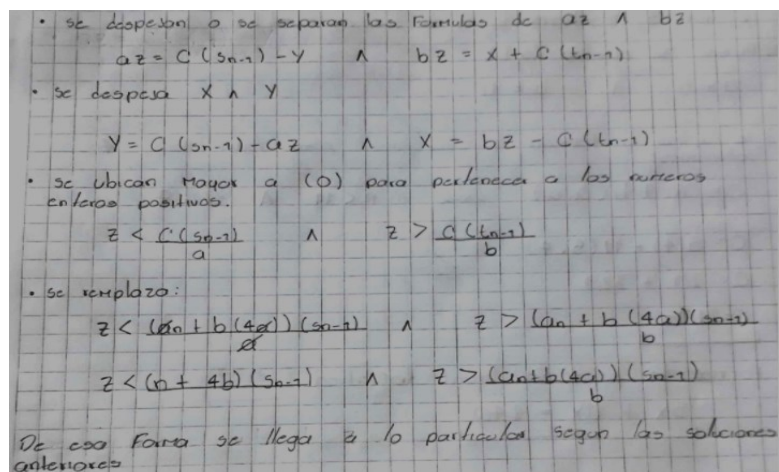 • se despejan o se separan las Formulas de az ∧ bz
az = C (Sn-1) - Y ∧ bz = X + C (tn-1)
• se despeja X ∧ Y
Y = C (Sn-1) - az ∧ X = bz - C (tn-1)
• se ubican Mayor a (0) para pertenecer a los numeros
enteros positivos.
z < C (Sn-1) / a ∧ z > C (tn-1) / b
• se remplazo:
z < (an + b (4a)) (Sn-1) / a ∧ z > (an + b (4a)) (Sn-1) / b
z < (n + 4b) (Sn-1) ∧ z > (an + b (4a)) (Sn-1) / b
De esa Forma se llega a lo particular segun las soluciones
anteriores